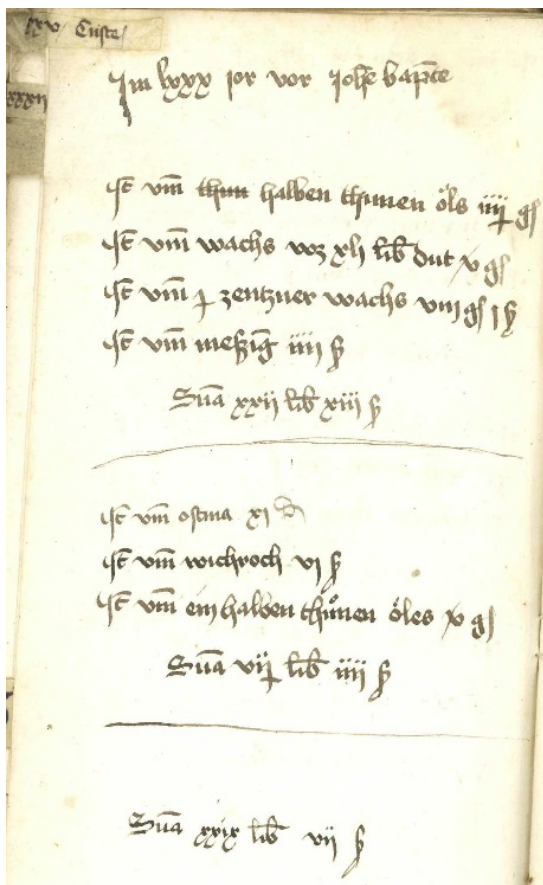 lxv Custe
xxxii
Im lxxx jor vor Johē bapte
It vm̄ thun halben thunen öls iiij gß
It vm̄ wachs wz xli lib dut v gß
It vm̄ j zentzner wachs viij gß j ß
It vm̄ meßīg iiij ß
Sūa xxij lib xiii ß
It vm̄ ostina xi d
It vm̄ wichroch vi ß
It vm̄ ein halben thünen öles v gß
Sūa vij lib iiij ß
Sūa xxix lib vij ß